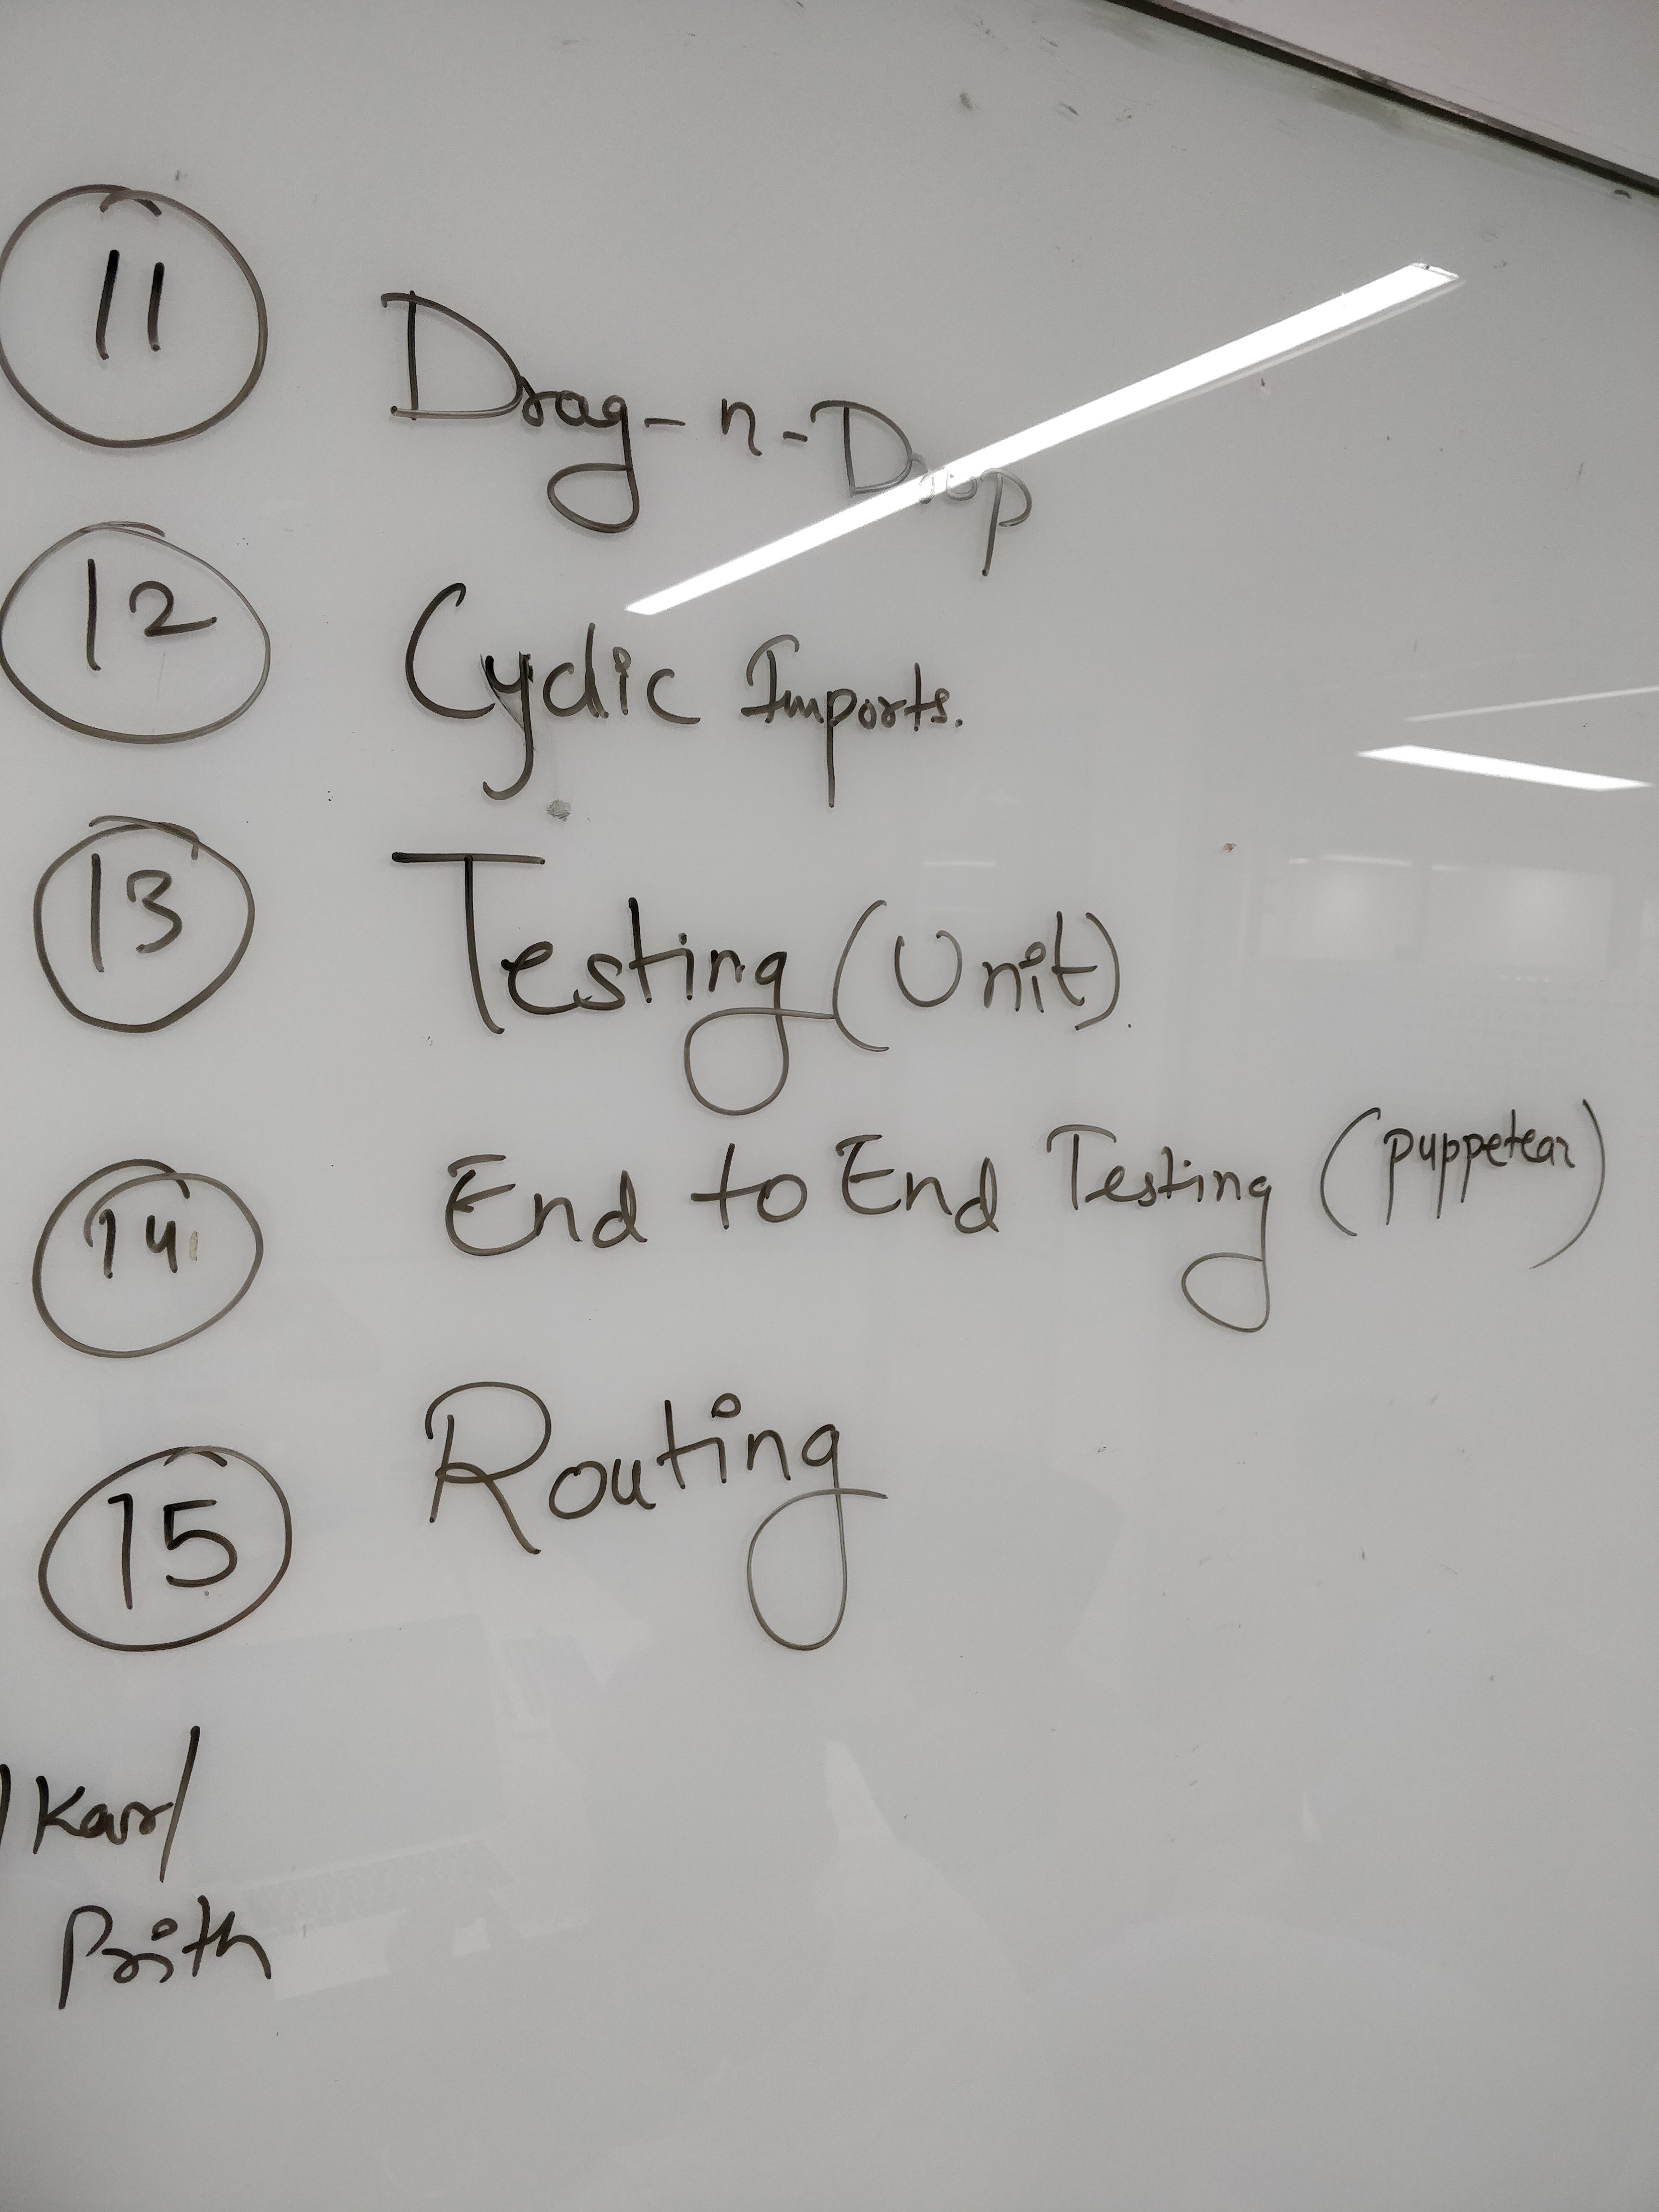 11 Drag-n-Drop
12 Cyclic Imports.
13 Testing (Unit).
14 End to End Testing (puppetear)
15 Routing
/Kar/
Prith